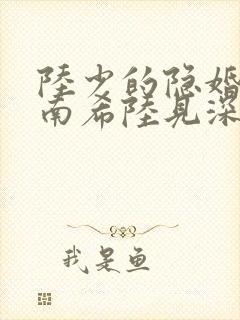 陸少的隐婚
南希陸見深
我是鱼